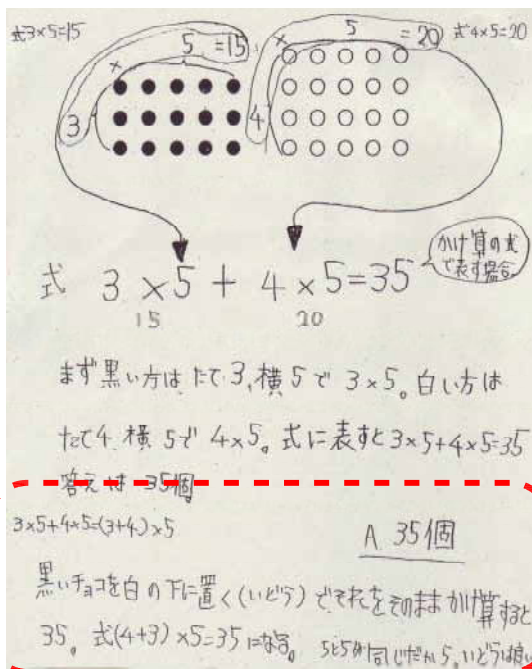 式3×5=15
5 =15
×
3
5 =20
×
4
式4×5=20
かけ算の式
で表す場合
式 3×5+4×5=35
15 20
まず黒い方は、たて3、横5で3×5。白い方は
たて4、横5で4×5。式に表すと3×5+4×5=35
答えは35個。
3×5+4×5=(3+4)×5
A 35個
黒いチョコを白の下に置く(いどう)でそれをそのままかけ算すると
35。式(4+3)×5=35になる。 5と5が同じだから、いどうは